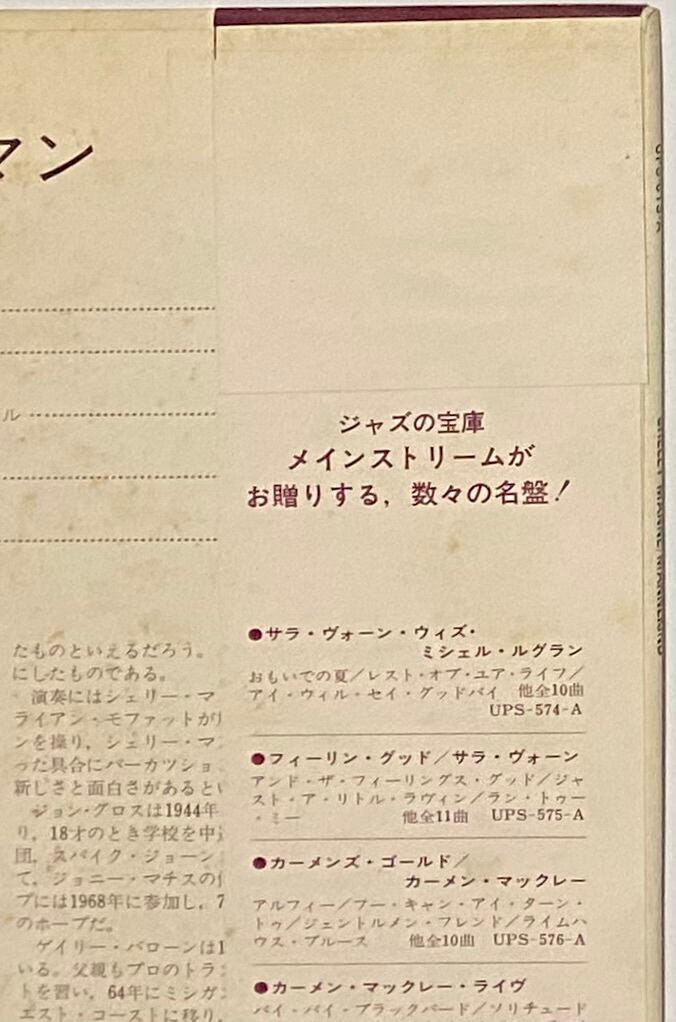 マン
ル
たものといえるだろう。
にしたものである。
演奏にはシェリー・マ
ライアン・モファットが
ンを操り，シェリー・マ
った具合にパーカッショ
新しさと面白さがあるとい
ジョン・グロスは1944年
り，18才のとき学校を中
団，スパイク・ジョーン
て，ジョニー・マチスの
プには1968年に参加し，7
のホープだ。
ゲイリー・バローンは1
いる。父親もプロのトラン
トを習い，64年にミシガ
エスト・コーストに移り，
ジャズの宝庫
メインストリームが
お贈りする，数々の名盤！
●サラ・ヴォーン・ウィズ・
ミシェル・ルグラン
おもいでの夏／レスト・オブ・ユア・ライフ／
アイ・ウィル・セイ・グッドバイ 他全10曲
UPS-574-A
●フィーリン・グッド／サラ・ヴォーン
アンド・ザ・フィーリングス・グッド／ジャ
スト・ア・リトル・ラヴィン／ラン・トゥー
・ミー 他全11曲 UPS-575-A
●カーメンズ・ゴールド／
カーメン・マックレー
アルフィー／フー・キャン・アイ・ターン・
トゥ／ジェントルメン・フレンド／ライムハ
ウス・ブルース 他全10曲 UPS-576-A
●カーメン・マックレー・ライヴ
バイ・バイ・ブラックバード／ソリチュード